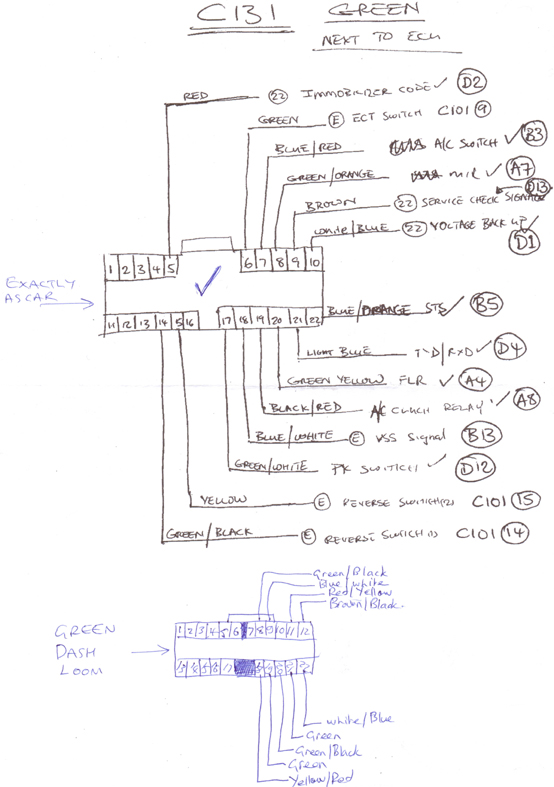 C131 GREEN
NEXT TO ECU
RED 22 IMMOBILIZER CODE ✓ D2
GREEN E ECT SWITCH C101 9
BLUE/RED A/C SWITCH ✓ B3
GREEN/ORANGE MIR ✓ A7
BROWN 22 SERVICE CHECK SIGNAL D13
WHITE/BLUE 22 VOLTAGE BACK UP ✓ D1
1 2 3 4 5 6 7 8 9 10
EXACTLY
AS CAR
11 12 13 14 15 16 17 18 19 20 21 22
BLUE/ORANGE STS ✓ B5
LIGHT BLUE TXD/RXD ✓ D4
GREEN YELLOW FLR ✓ A4
BLACK/RED A/C CLUTCH RELAY ✓ A8
BLUE/WHITE E VSS Signal B13
GREEN/WHITE PK SWITCH ✓ D12
YELLOW E REVERSE SWITCH(2) C101 15
GREEN/BLACK E REVERSE SWITCH(1) C101 14
Green/Black
Blue/white
Red/Yellow
Brown/Black
GREEN
DASH
LOOM
1 2 3 4 5 6 7 8 9 10 11 12
white/Blue
Green
Green/Black
Green
Yellow/Red